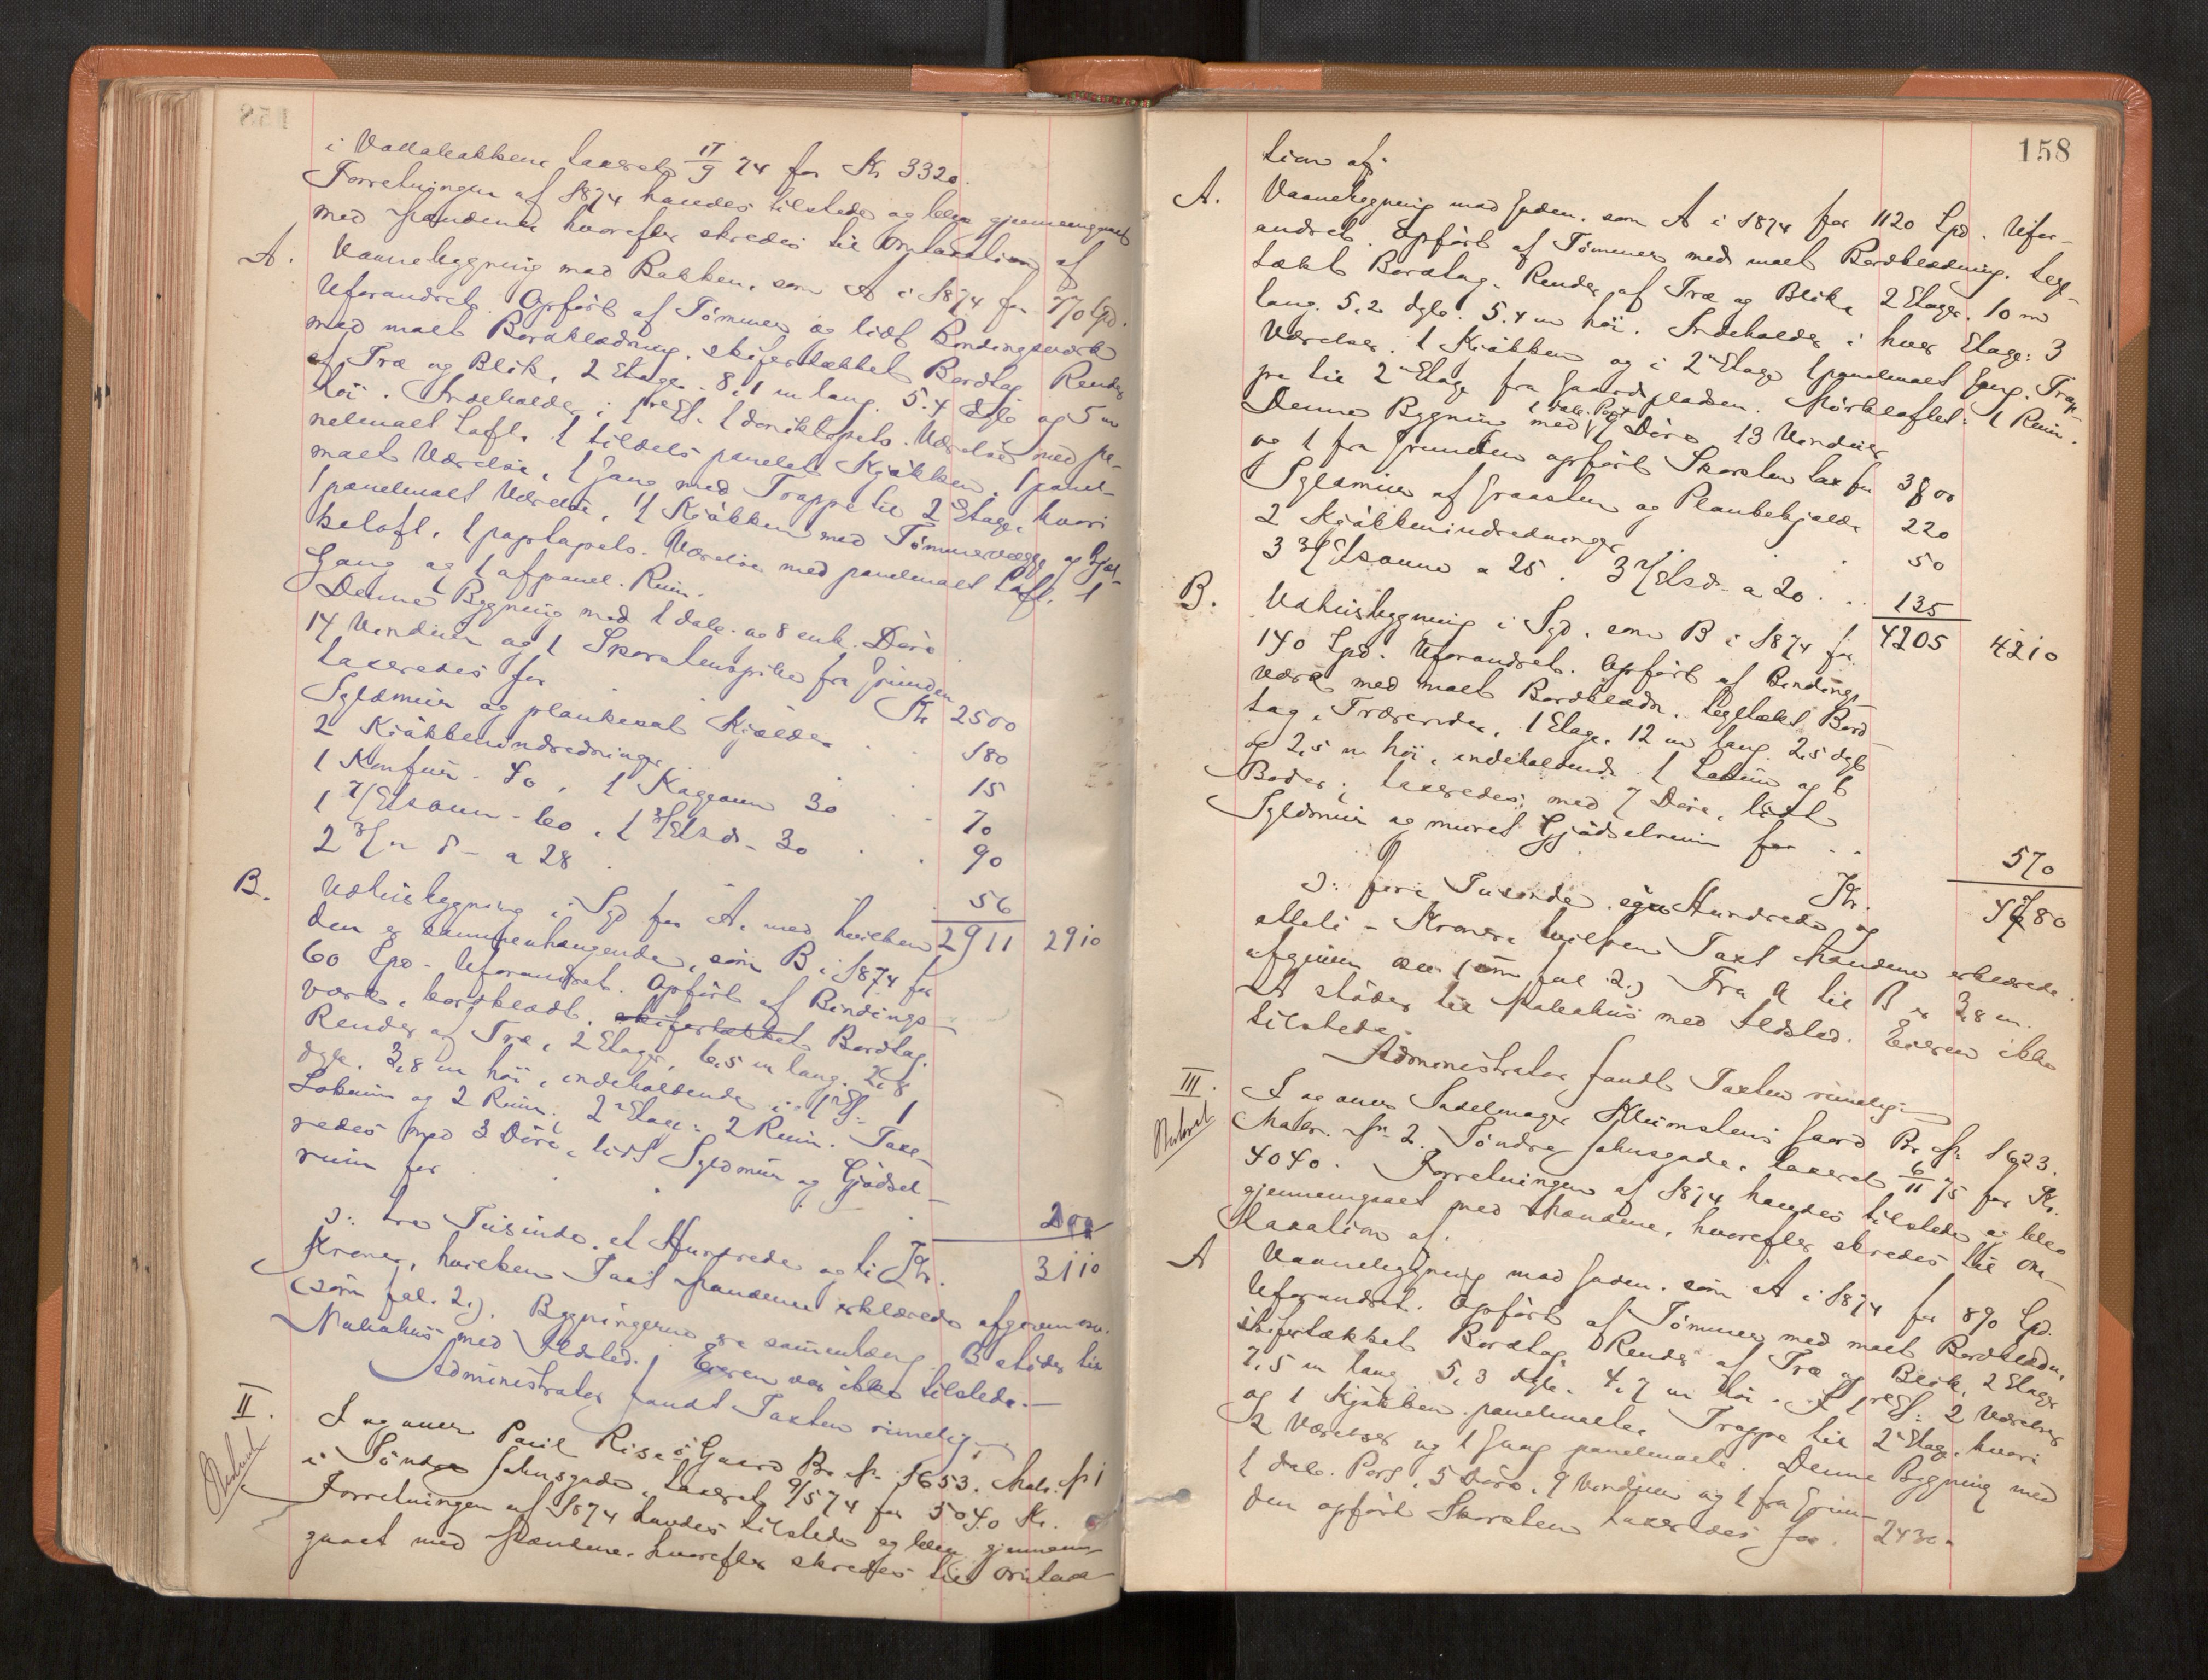 i Vollabakkene taxeret 17/9 74 for Kr 3320.
Forretningen af 1874 havdes tilstede og blev gjennemgaaet
med Mændene hvorefter skredes til Omtaxation af
A. Vaanebygning mod Bakken, som A i 1874 for 770 Spd.
Uforandret. Opført af Tømmer og lidt Bindingsværk
med malt Bordklædning, skifertækket Bordtag Render
af Træ og Blik, 2 Etager. 8,1 m lang. 5.4 dyb og 5 m
høi. Indeholder i 1ste Et. 1 doniktapets. Værelse med pa-
nelmalt Loft, 1 tildels panelet Kjøkken, 1 panel-
malt Værelse, 1 Gang med Trappe til 2den Etage, hvori
1 panelmalt Værelse, 1 Kjøkken med Tømmervægge og Bjel-
keloft, 1 paptapets. Værelse med panelmalt Loft, 1
Gang og 1 afpanel. Rum.
Denne Bygning med 1 dob. og 8 enk. Døre
14 Vinduer og 1 Skorstenspibe fra Grunden
taxeredes for Kr 2500
Syldmur og plankesat Kjælder . . 180
2 Kjøkkenindredninger . . 15
1 Komfur - 40, 1 Kaggovn 30 . . 70
1 7/Etsovn - 60, 1 3/Etsd - 30 . . 90
2 3/" d - a 28 . 56
2911 2910
B. Udhusbygning i Sgd for A, med hvilken
den er sammenhængende, som B i 1874 for
60 Spd. Uforandret. Opført af Bindings-
værk, bordklædt, skifertækket Bordtag,
Render af Træ, 2 Etager, 6,5 m lang. 2,8
dyb. 3,8 m høi, indeholdende i 1ste Et: 1
Lokum og 2 Rum; 2den Etage: 2 Rum. Taxe-
redes med 3 Døre, lidt Syldmur og Gjødsel-
rum for . . 200
Kr. 3110
ɔ: tre Tusinde, et Hundrede og ti
Kroner, hvilken Taxt Mændene erklærede afgiven ov.
(som fol. 2.). Bygningerne ere sammenhæng. B støder til
Nabohus med Ildsted. Eieren var ikke tilstede.-
Administrator fandt Taxten rimelig.-
II. I og over Paul Risøs Gaard Br. № 1653. Matr. № 1
i Søndre Johnsgade, taxeret 9/5 74 for 5040 Kr.
Forretningen af 1874 havdes tilstede og blev gjennem-
gaaet med Mændene, hvorefter skredes til Omtaxa-
158
tion af:
A. Vaanebygning mod Gaden, som A i 1874 for 1120 Spd. Ufor-
andret. Opført af Tømmer med malt Bordklædning. tegl-
tækt Bordtag, Render af Træ og Blik, 2 Etager. 10 m
lang. 5,2 dyb. 5.4 m høi. Indeholder i hver Etage: 3
Værelser, 1 Kjøkken og i 2den Etage 1 panelmalt Gang. Trap-
pe til 2den Etage fra Gaardspladsen. Mørkeloftet: 1 Rum.
Denne Bygning med 1 dob. Port 7 Døre, 13 Vinduer
og 1 fra Grunden opført Skorsten tax for 3800
Syldmur af Graasten og Plankekjælder 220
2 Kjøkkenindredninger . . 50
3 3/Etsovne a 25. 3 2/Etsd. a 20 . . 135
4205 4210
B. Udhusbygning i Sgd. som B i 1874 for
140 Spd. Uforandret. Opført af Bindings-
værk med malt Bordklædn. tegltækt Bord-
tag, Trærender, 1 Etage, 12 m lang. 2,5 dyb
og 2,5 m høi, indeholdende 1 Lokum og 6
Boder; taxeredes med 7 Døre, lidt
Syldmur og muret Gjødselrum for . . 570
Kr. 4780
ɔ: fire Tusinde, syv Hundrede og
otteti - Kroner, hvilken Taxt Mændene erklærede
afgiven ov. (som fol. 2.) Fra A til B er 3,8 m.
A støder til Nabohus med Ildsted. Eieren ikke
tilstede.
Administrator fandt Taxten rimelig.-
III. I og over Sadelmager Klüwstens Gaard Br. № 1623.
Matr. № 2. Søndre Johnsgade, taxeret 6/11 75 for Kr.
4040. Forretningen af 1874 havdes tilstede og blev
gjennemgaaet med Mændene, hvorefter skredes til Om-
taxation af.
A Vaanebygning mod Gaden, som A i 1874 for 890 Spd.
Uforandret. Opført af Tømmer med malt Bordklædn.
skifertækket Bordtag. Render af Træ og Blik, 2 Etager
7,5 m lang. 5,3 dyb. 4,7 m høi. I 1ste Et: 2 Værelser
og 1 Kjøkken panelmalte, Trappe til 2den Etage, hvori
2 Værelser og 1 Gang panelmalte. Denne Bygning med
1 dob. Port, 5 Døre, 9 Vinduer og 1 fra Grun-
den opført Skorsten taxeredes for . 2430.